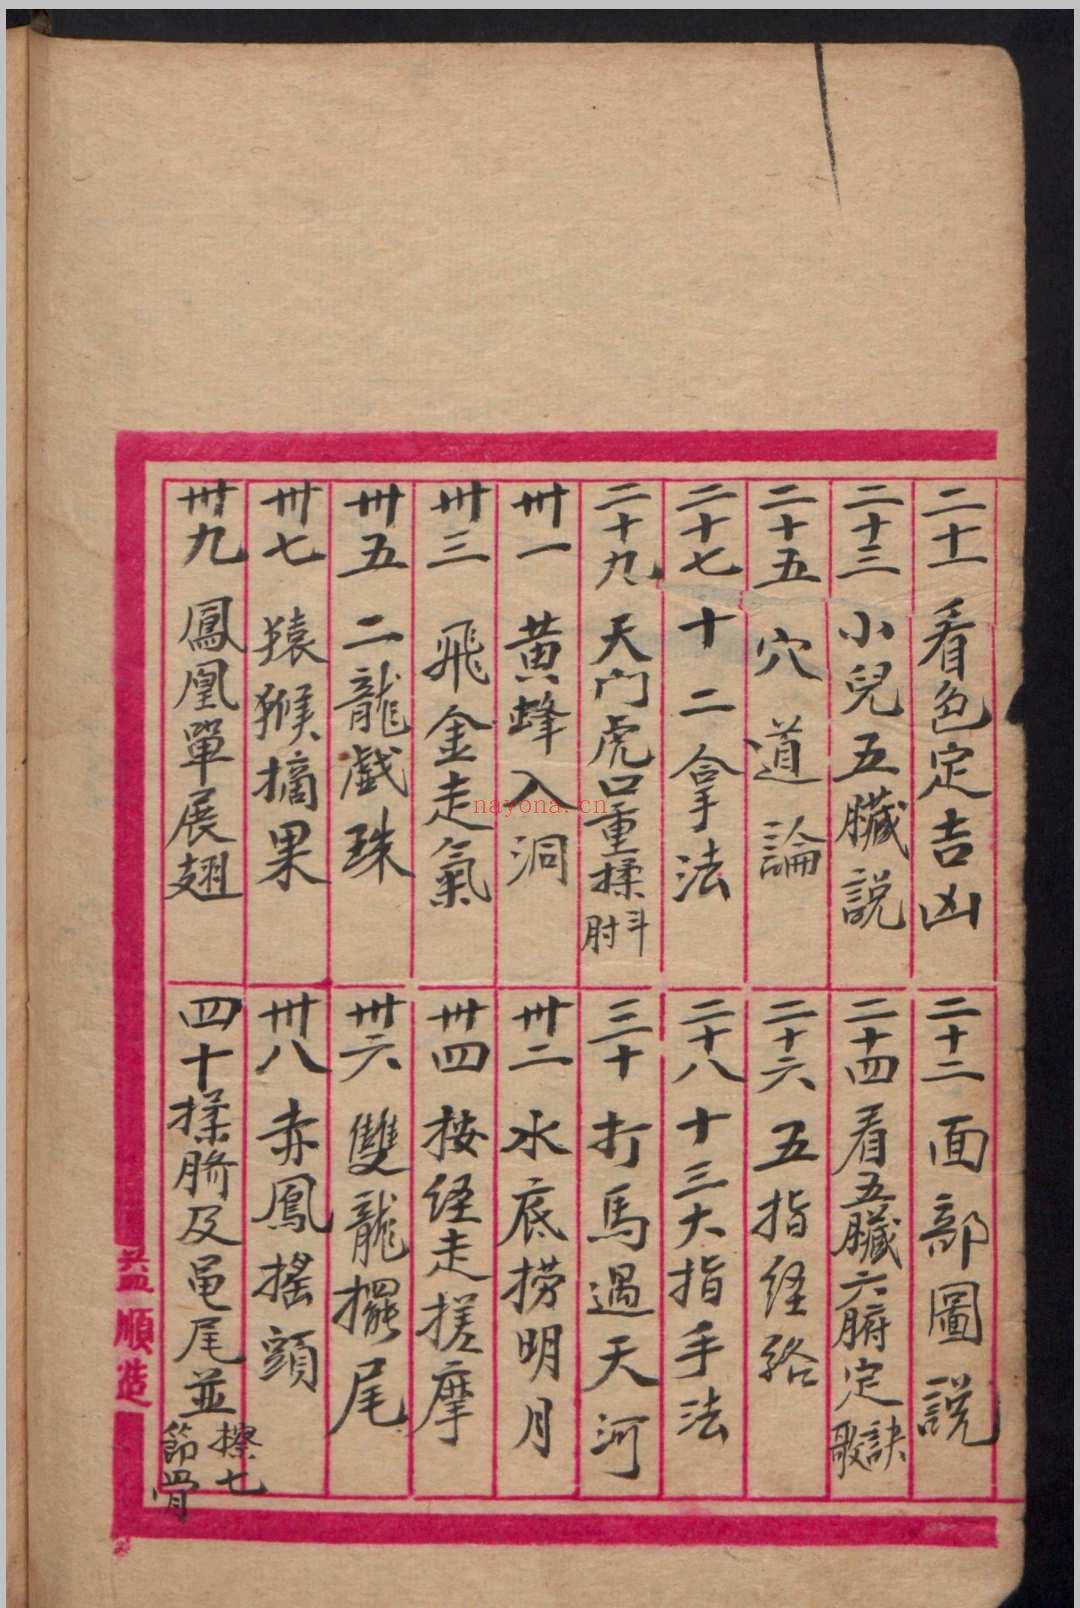 二十一 看色定吉凶
二十二 面部圖説
二十三 小兒五臟説
二十四 看五臟六腑定歌訣
二十五 穴道論
二十六 五指经络
二十七 十二拿法
二十八 十三大指手法
二十九 天门虎口重揉斗肘
三十 打馬過天河
卅一 黄蜂入洞
卅二 水底捞明月
卅三 飛金走氣
卅四 按经走搓摩
卅五 二龍戲珠
卅六 雙龍擺尾
卅七 猿猴摘果
卅八 赤鳳摇頭
卅九 鳳凰單展翅
四十 揉臍及黾尾並擦七節骨
益順造
nayona.cn